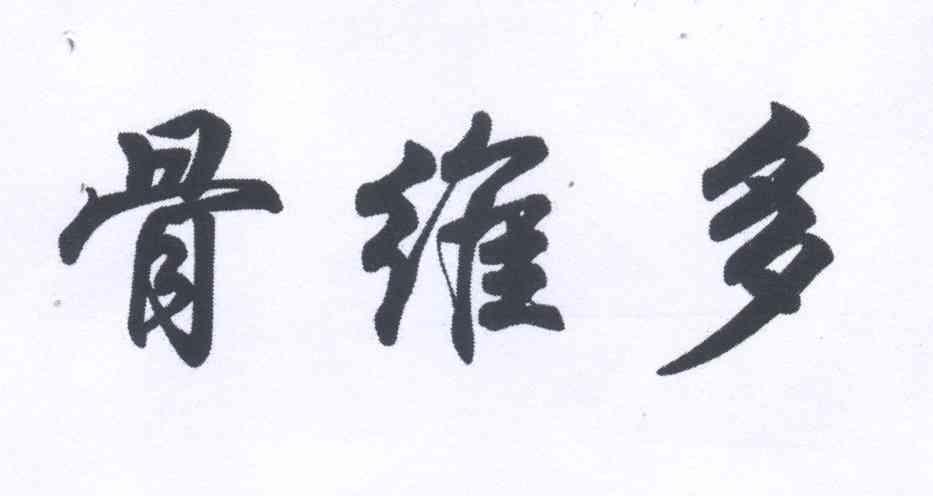 骨维多